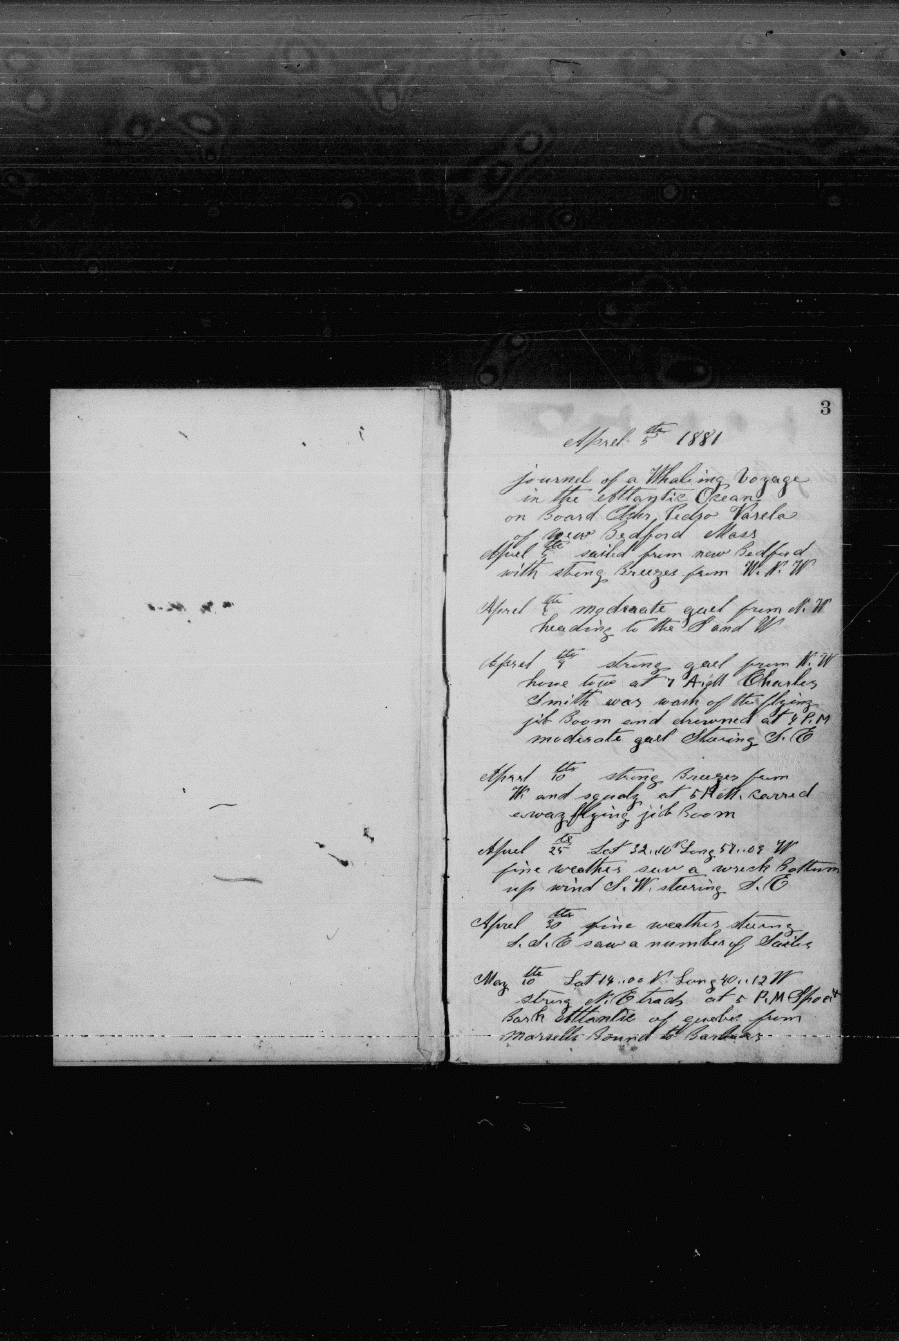 3
Aprel 5th 1881
journel of a Whaleing Voyage
in the Attlantic Ocean
on Board Schr, Pedro Varela
of New Bedford Mass
Aprel 5th sailed from new Bedford
with string Breezes from W. N. W
Aprel 6th moderate gael from N. W
heading to the S and W
Aprel 9th string gael from N. W
hove tow at 7 A.M Charles
Smith was wash of the flying
jib Boom and drowned at 4 P.M
moderate gael Stearing S. E
Aprel 10th string Breezes from
W. and squaly at 5 P.M. carred
away flying jib Boom
Aprel 25th Lat 32..10 N Long 57..09 W
fine weather saw a wreck Bottum
up wind S. W. steering S. E
Aprel 30th fine weather steering
S. S. E saw a number of Sails
May 10th Lat 14..00 N. Long 40..12 W
string N. E trads at 5 P.M Spock
Bark Attlantic of quebec from
Marsells Bound to Barbaras